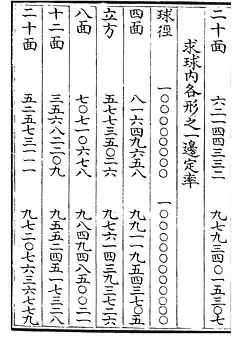 二十面 六二一四四三三二 九七九三四〇一五三〇七
求球內各形之一邊定率
球徑 一〇〇〇〇〇〇〇〇 一〇〇〇〇〇〇〇〇〇〇
四面 八一六四九六五八 九九一一九五四三七〇五
立方 五七七三五〇二六 九七六一四三九三七二六
八面 七〇七一〇六七八 九八四九四八五〇〇二一
十二面 三五六八二二〇九 九五五二四五一七三八
二十面 五二五七三一一一 九七二〇七六三六七七九